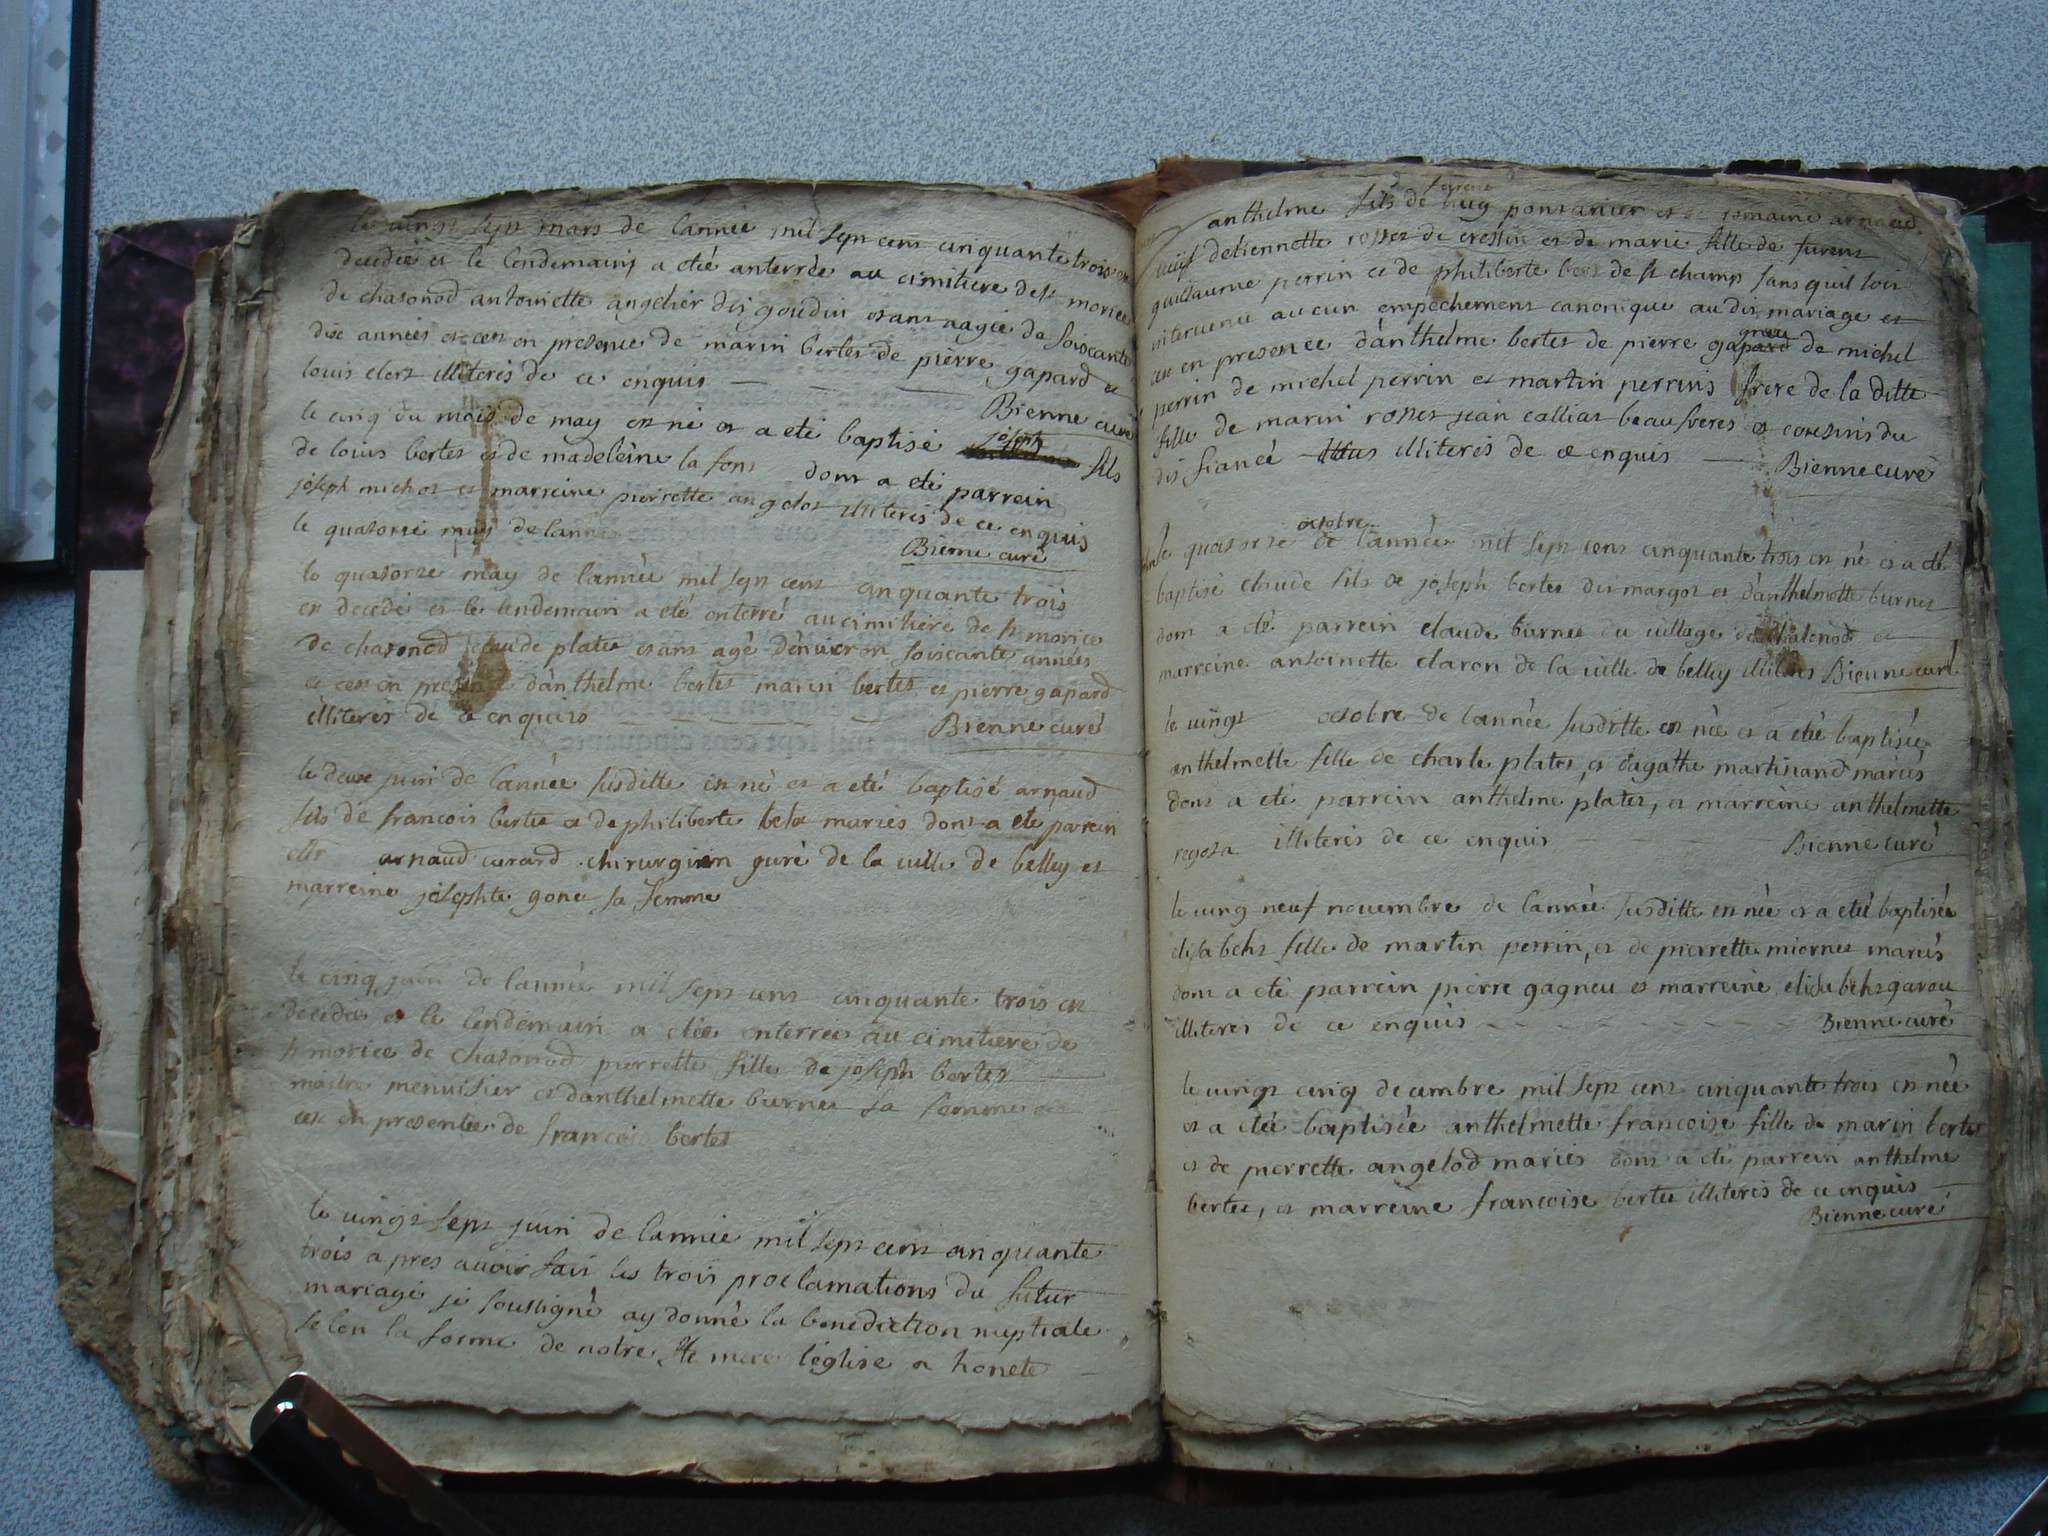 le vingt sept mars de lannée mil sept cens cinquante trois est
decedée et le lendemains a etée anterrée au cimitiere de st morice
de chasonod antoinette angelier dit goudin etant aagée de soiscante
dix années et cest en presence de marin bertet de pierre gapard et
louis clert illiteris de ce enquis
Bienne curé
le cinq du mois de may est né et a eté baptisé joseph fils
de louis bertet et de madeleine la font dont a eté parrein
joseph michot et marreine pierrette angelot illiteris de ce enquis
Bienne curé
le quatorze may de lannée
le quatorze may de lannée mil sept cens cinquante trois
est decedé et le lendemain a eté enterré au cimitiere de st morice
de chasonod claude platet etant agé denviron soiscante années
et cest en presence danthelme bertet marin bertet et pierre gapard
illiteris de ce enquis
Bienne curé
le deuxe juin de lannée susditte est né et a eté baptisé arnaud
fils de francois bertet et de philiberte belot mariés dont a eté parrein
arnaud curard chirurgien juré de la ville de belley et
marreine josephte gonet sa femme
le cinq juin de lannée mil sept cens cinquante trois est
decedée et le lendemain a etée enterree au cimitiere de
st morice de chasonod pierrette fille de joseph bertet
maitre menuisier et danthelmette burnet sa femme et
cest en presentée de francois bertet
le vingt sept juin de lannée mil sept cens cinquante
trois a pres avoir fait les trois proclamations du futur
mariage je soussigné ay donné la benediction nuptiale
selon la forme de notre ste mere leglise a honete
anthelme fils de hug ponsanier et de romaine arnaud
veuf detiennette rosset de cressin et de marie fille de furent
guillaume perrin et de philiberte beet de st champ sans quil soit
intervenu aucun empechement canonique au dit mariage et
ce en presence danthelme bertet de pierre gapard de michel
perrin de michel perrin et martin perrins frere de la ditte
fille de marin rosset jean calliat beaufreres et cousins du
dit fiancé illiteris de ce enquis
Bienne curé
octobre
le quatorze de lannée mil sept cens cinquante trois est né et a eté
baptisé claude fils de joseph bertet dit margot et danthelmette burnet
dont a eté parrein claude burnet du village de et
marreine antoinette claron de la ville de belley illiteris Bienne curé
le vingt octobre de lannée susditte est née et a etée baptisée
anthelmette fille de charle platet, et dagathe martinand mariés
dont a eté parrein anthelme platet, et marreine anthelmette
illiteris de ce enquis
Bienne curé
le vinq neuf novembre de lannée susditte est née et a etée baptisée
elisabeht fille de martin perrin, et de pierrette miornet mariés
dont a eté parrein pierre gagneu et marreine elisabeht gavou
illiteres de ce enquis
Bienne curé
le vingt cinq decembre mil sept cens cinquante trois est née
et a etée baptisée anthelmette francoise fille de marin bertet
et de pierrette angelod mariés dont a eté parrein anthelme
bertet, et marreine francoise bertet illiteris de ce enquis
Bienne curé